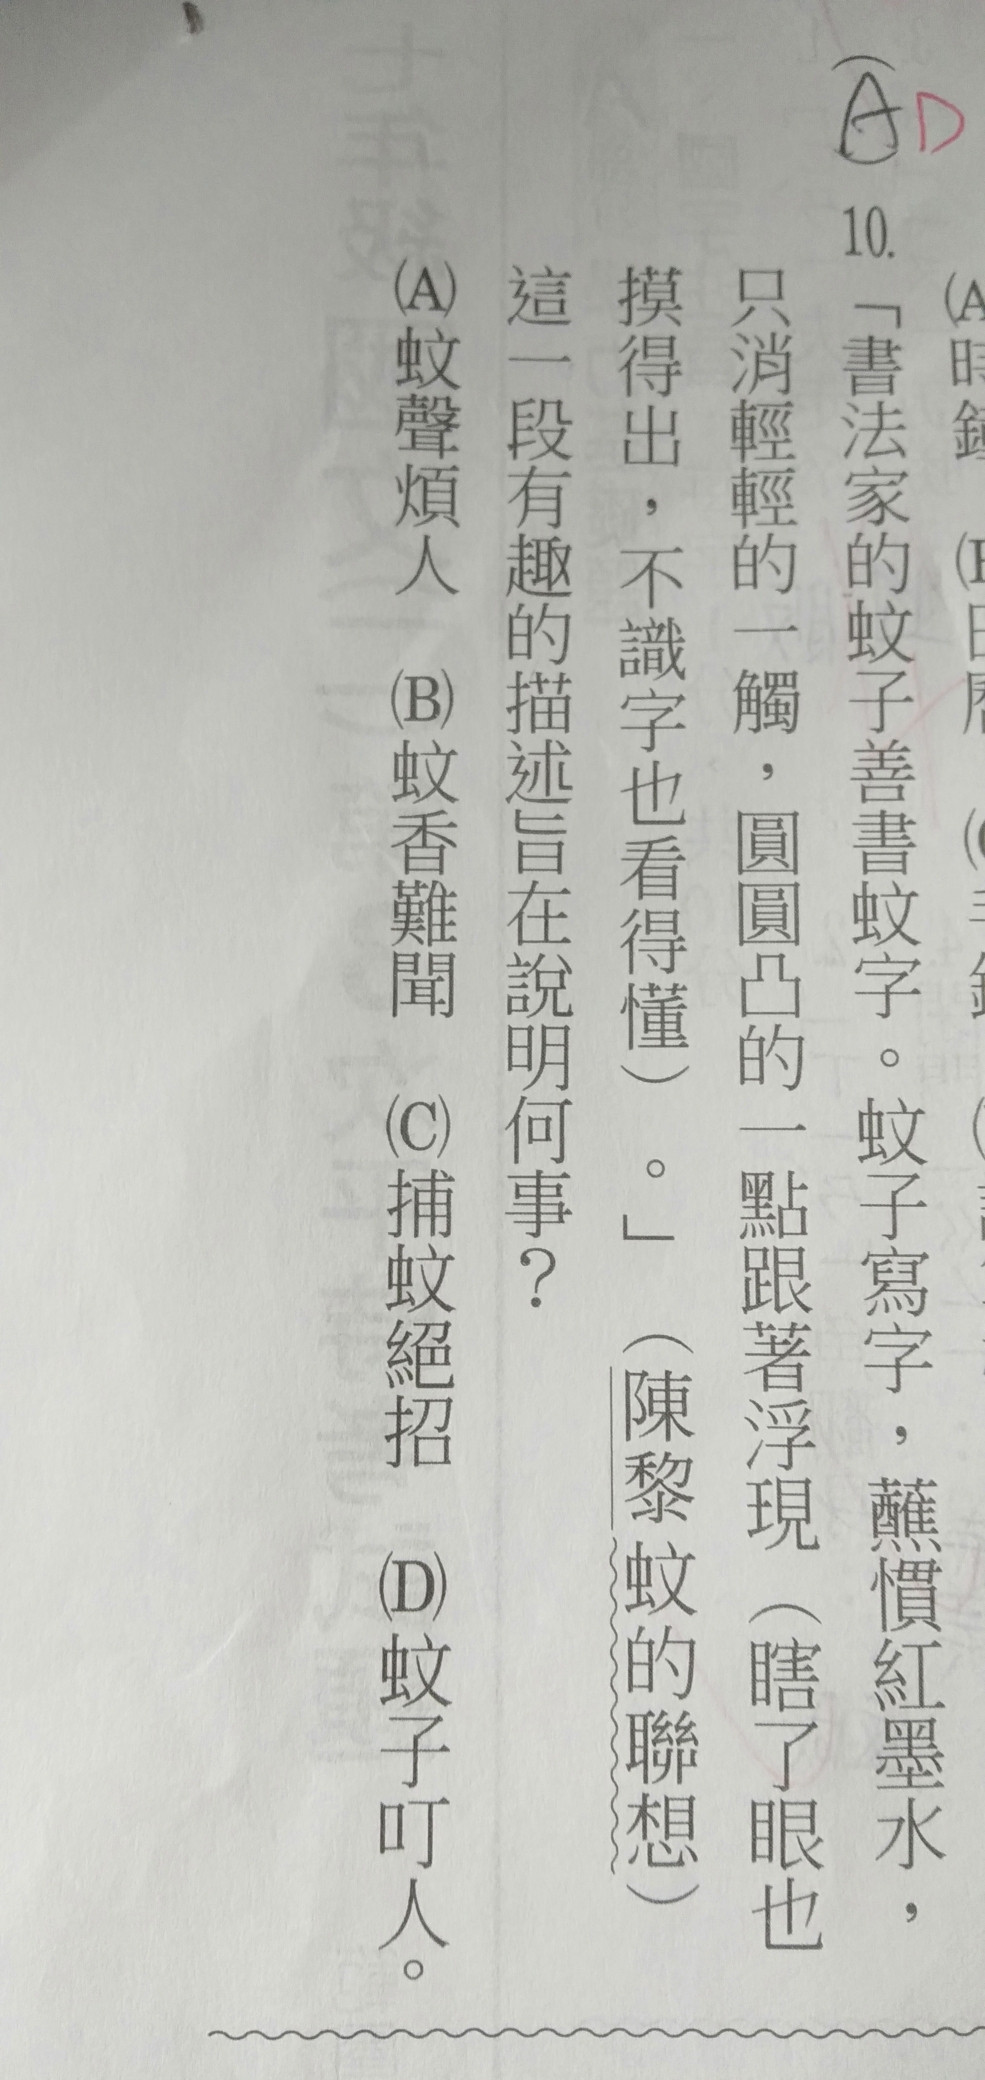 (A) D 10.「書法家的蚊子善書蚊字。蚊子寫字，蘸慣紅墨水，
只消輕輕的一觸，圓圓凸的一點跟著浮現（瞎了眼也
摸得出，不識字也看得懂）。」（陳黎蚊的聯想）
這一段有趣的描述旨在說明何事？
(A)蚊聲煩人 (B)蚊香難聞 (C)捕蚊絕招 (D)蚊子叮人。